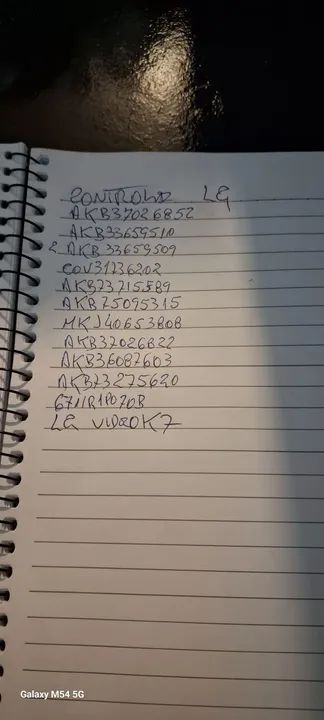 CONTROLES LG
AKB37026852
AKB33659510
2 AKB33659509
COV31736202
AKB73715589
AKB75095315
MKJ40653808
AKB37026822
AKB36087603
AKB73275620
6711R1P070B
LG VIDEOK7
Galaxy M54 5G